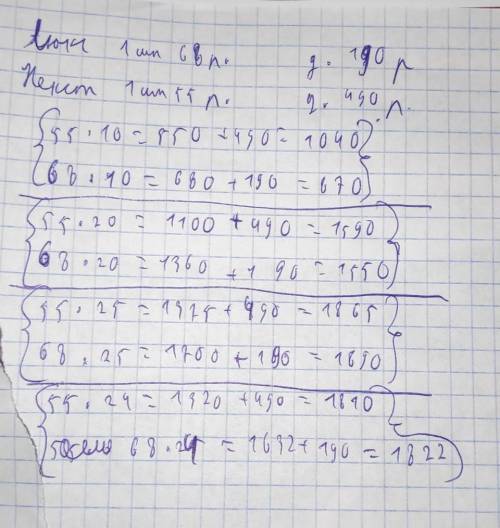 1 шт 68 р. д. 190 р
1 шт 55 р. д. 490 р.
55 · 10 = 550 + 490 = 1040
68 · 10 = 680 + 190 = 670
55 · 20 = 1100 + 490 = 1590
68 · 20 = 1360 + 190 = 1550
55 · 25 = 1375 + 490 = 1865
68 · 25 = 1700 + 190 = 1890
55 · 24 = 1320 + 490 = 1810
68 · 24 = 1632 + 190 = 1822